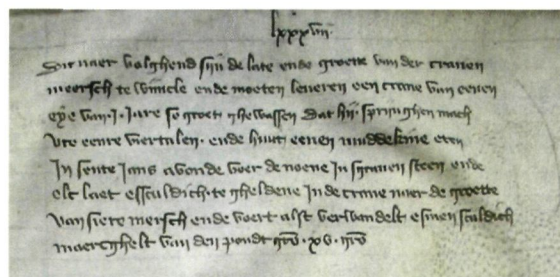 lxxxviij.
Hier naer volghend sijn de late ende groette van der cranen
meersch te Wincle ende moeten leueren een crane van eenen
eye van .j. jare so groet ghewassen dat hij springhen mach
vte eenre viertalen. ende huut eenen muddekine eten
In sente Jans auonde voer de noene in sgrauen steen ende
elc laet es sculdich te gheldene in de crane naer de groette
van siere mersch ende voert alst verwandelt es men sculdich
maerghelt van den pondt